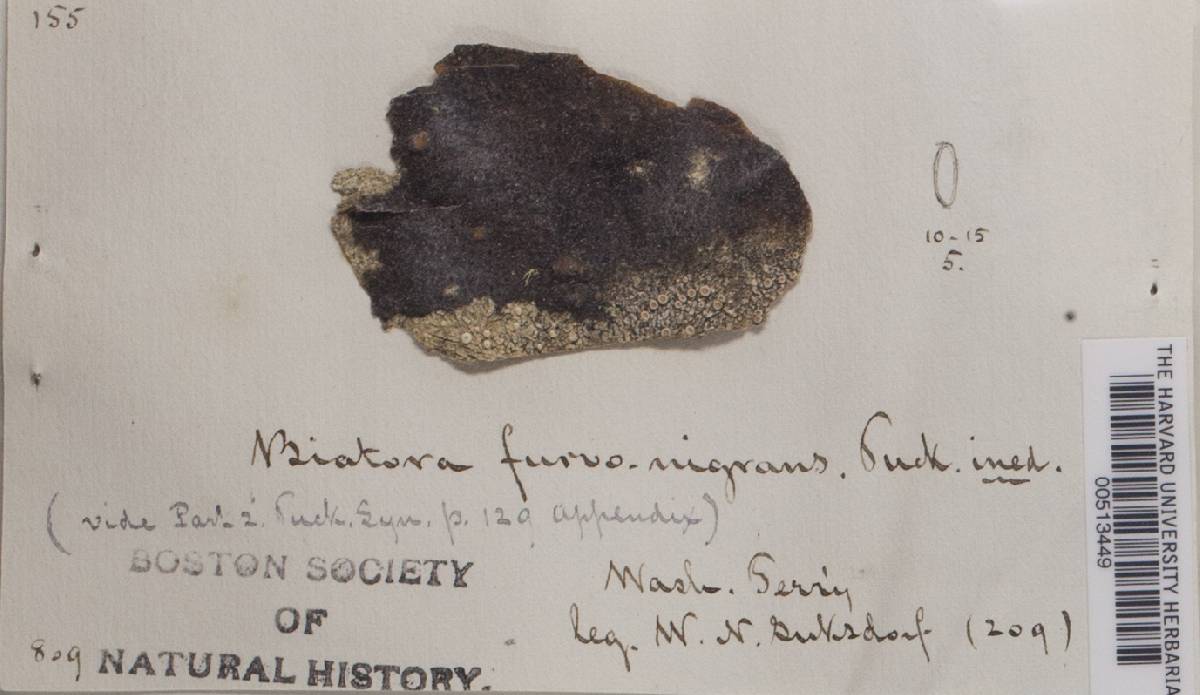 155
10-15
5.
Biatora furvo-nigrans. Tuck. ined.
(vide Part 2. Tuck. Syn. p. 129 appendix)
BOSTON SOCIETY
OF
NATURAL HISTORY.
Wash. Terr'y
leg. W. N. Suksdorf (209)
809
THE HARVARD UNIVERSITY HERBARIA
00513449